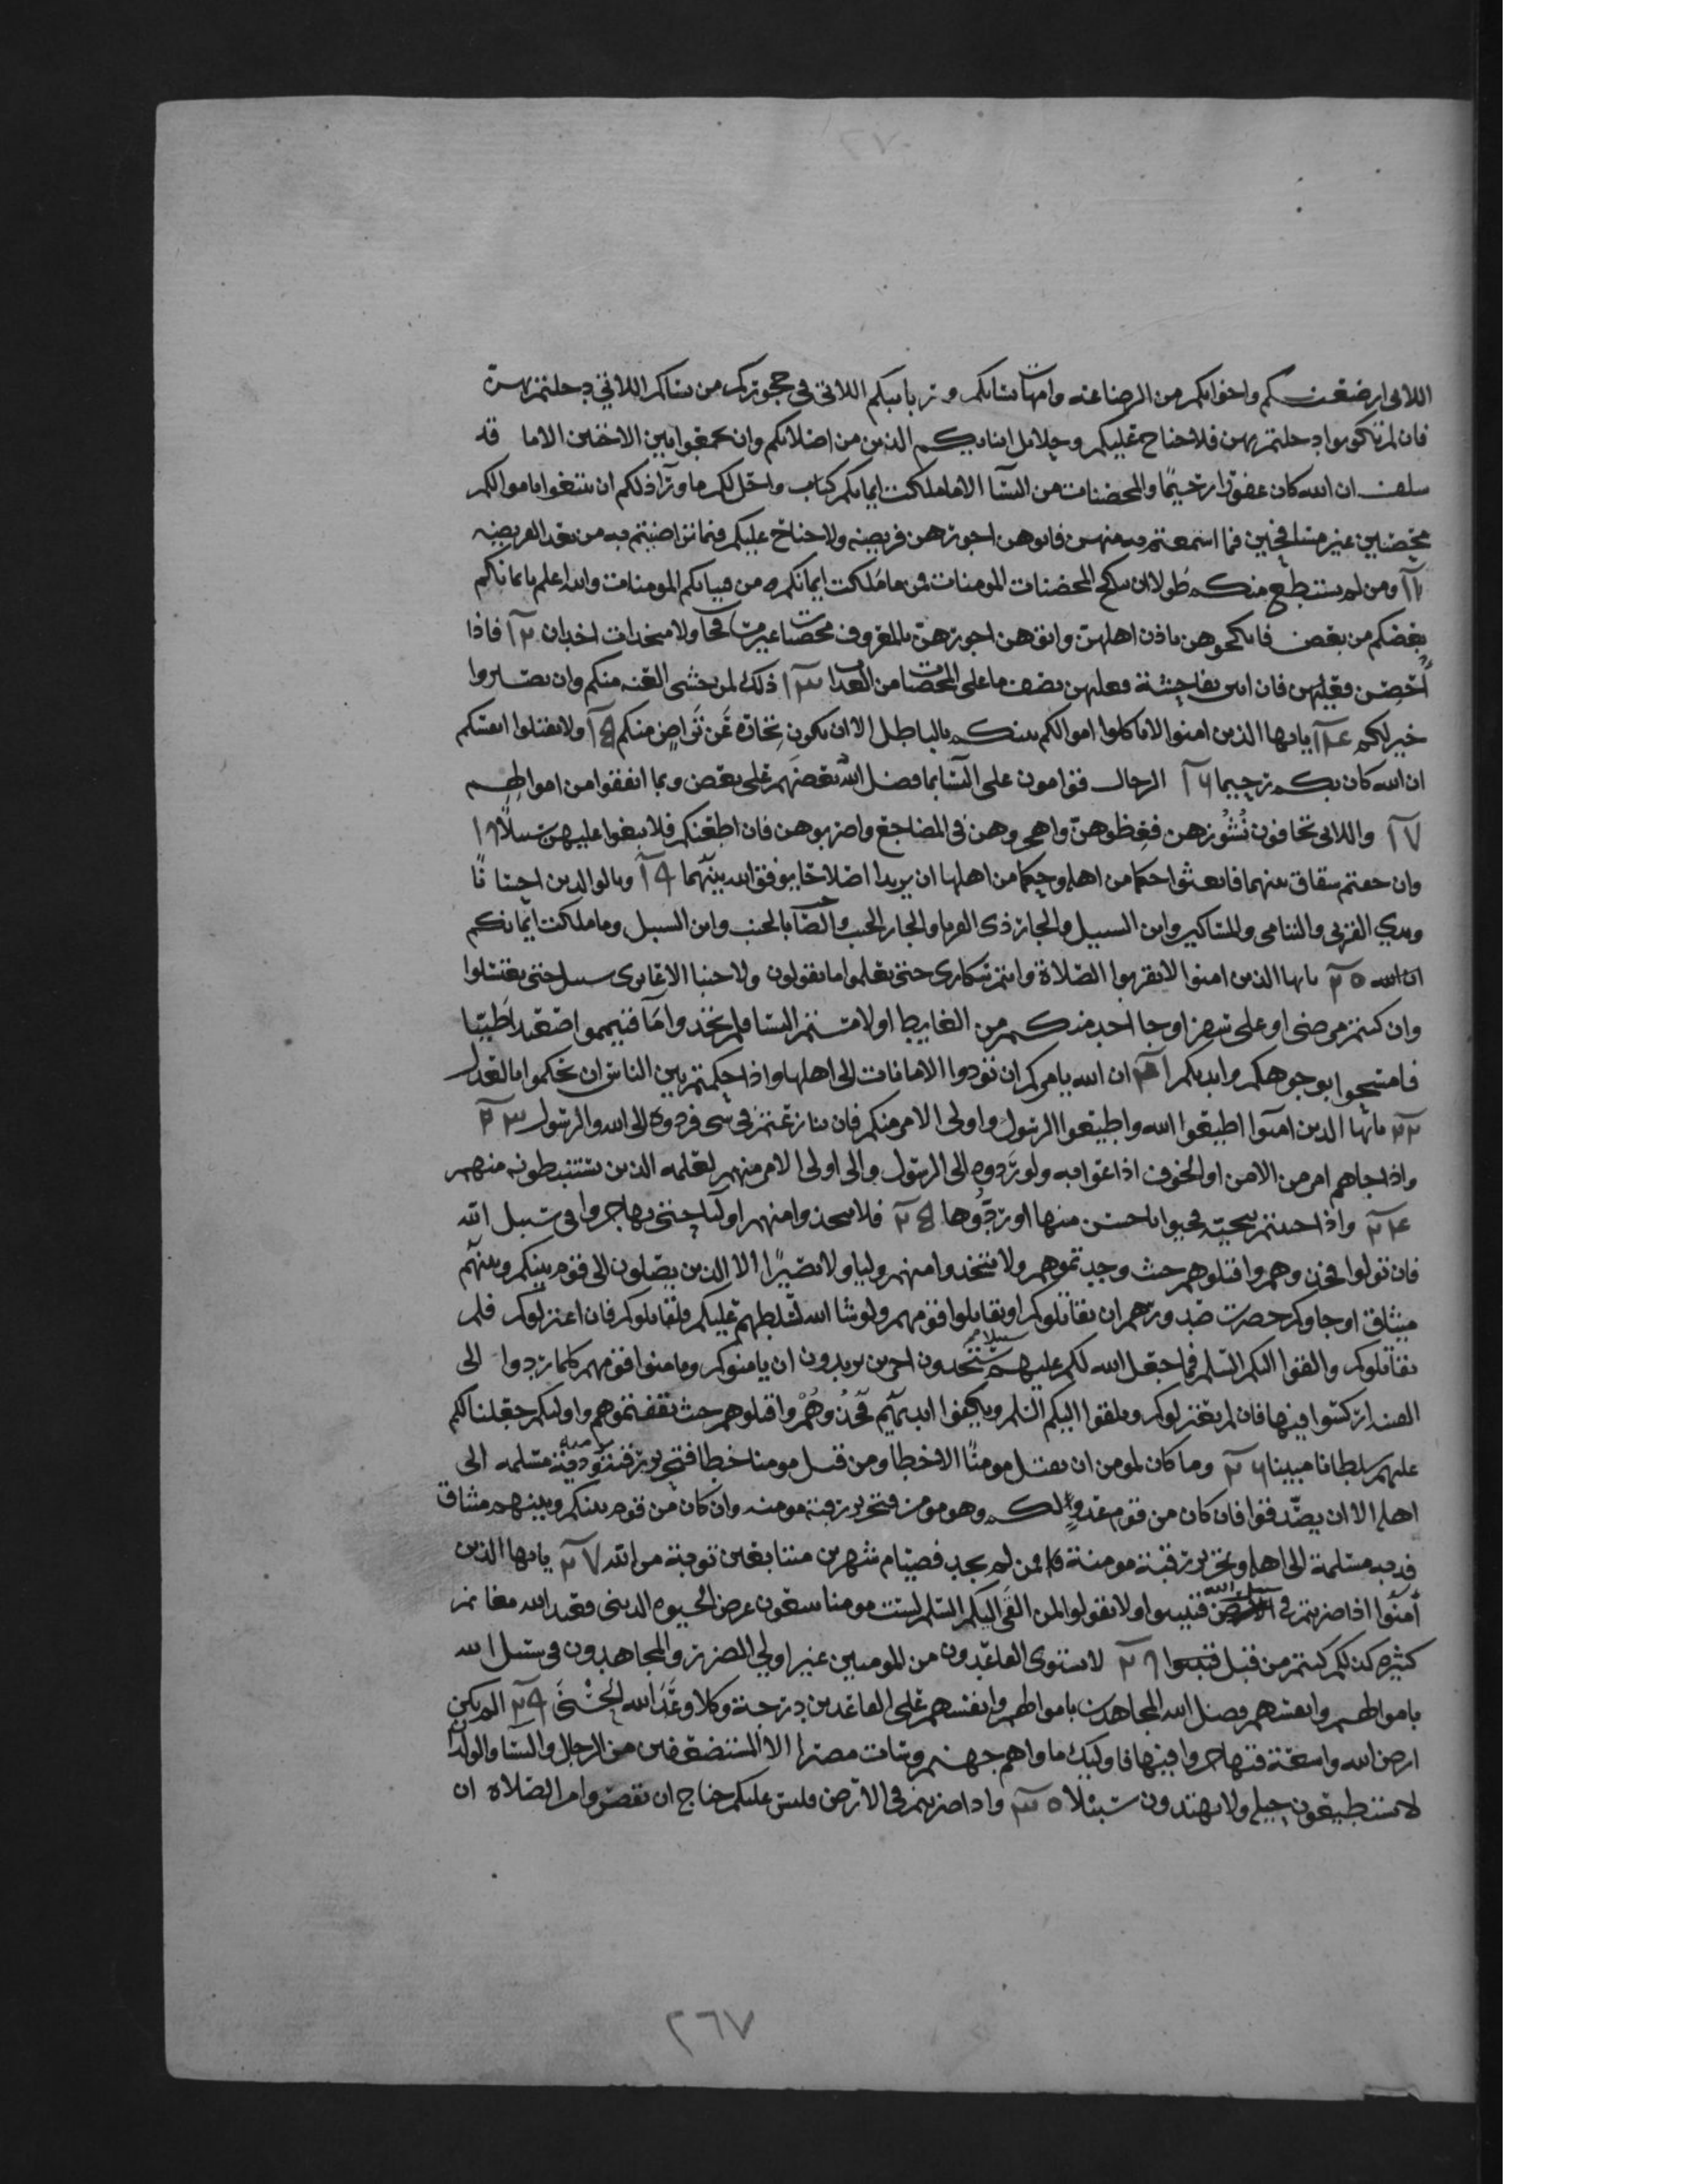 اللاتي ارضعنكم واخواتكم من الرضاعه وامهات نسايكم وربايبكم اللاتي في حجوركم من نسائكم اللاتي دخلتم بهن
فان لم تكونوا دخلتم بهن فلا جناح عليكم وحلايل ابنايكم الذين من اصلابكم وان تجمعوا بين الاختين الاما قد
سلف ان الله كان غفورا رحيمًا والمحصنات من النسآ الا ما ملكت ايمانكم كتاب واحل لكم ما ورآ ذلكم ان تبتغوا باموالكم
محصنين غير مسافحين فما استمعتم به منهن فاتوهن اجورهن فريضه ولا جناح عليكم فيما تراضيتم به من بعد الفريضه
١١ ومن لم يستطع منكم طولا ان ينكح المحصنات المومنات فمن ما ملكت ايمانكم من فتياتكم المومنات والله اعلم بايمانكم
بعضكم من بعض فانكحوهن باذن اهلهن واتوهن اجورهن بالمعروف محصنات غير مسافحات ولا متخدات اخدان ١٢ فاذا
اُحصن فعليهن فان اتين بفاحشة فعليهن نصف ما على المحصنات من العداب ١٣ ذلك لمن خشى العنه منكم وان تصبروا
خير لكم ١٤ يايها الذين امنوا لا تاكلوا اموالكم بينكم بالباطل الا ان تكون تجارة عَن تراضٍ منكم ١٥ ولا تقتلوا انفسكم
ان الله كان بكم رحيما ١٦ الرجال قوامون على النسآ بما فضل الله بعضهم على بعض وبما انفقوا من اموالهم
١٧ واللاتى تخافون نُشُوزهن فعِظوهنّ واهجروهن في المضاجع واضربوهن فان اطعنكم فلا تبغوا عليهن سبيلًا ١٨
وان خفتم شقاق بينهما فابعثوا حكما من اهله وحكما من اهلها ان يريدا اصلاحًا يوفق الله بينهما ١٩ وبالوالدين احسانًا
وبذي القربى واليتامى والمساكين وابن السبيل والجار ذى القربا والجار الجنب والصاحب بالجنب وابن السبيل وما ملكت ايمانكم
ان الله ٢٠ يايها الذين امنوا لا تقربوا الصلاة وانتم سكارى حتى تعلموا ما تقولون ولا جنبا الا عابرى سبيل حتى تغتسلوا
وان كنتم مرضى او على سفر او جا احد منكم من الغايط او لامستم النسا فلم تجدوا مآ فتيمموا صعيدا طيبا
فامسحوا بوجوهكم وايديكم ٢١ ان الله يامركم ان تودوا الامانات الى اهلها واذا حكمتم بين الناس ان تحكموا بالعدل
٢٢ يايها الذين آمنوا اطيعوا الله واطيعوا الرسول واولى الامر منكم فان تنازعتم في شي فردوه الى الله والرسول ٢٣
واذا جاهم امر من الامن او الخوف اذاعوا به ولو رَدوه الى الرسول والى اولى الامر منهم لعلمه الذين يستنبطونه منهم
٢٤ واذا حييتم بتحية فحيوا باحسن منها او ردُّوها ٢٥ فلا تتخذوا منهم اوليا حتى يهاجروا في سبيل الله
فان تولوا فخذوهم واقتلوهم حيث وجدتموهم ولا تتخذوا منهم وليا ولا نصيرًا الا الذين يصلون الى قوم بينكم وبينهم
ميثاق او جاوكم حصرت صدورهم ان يقاتلوكم او يقاتلوا قومهم ولو شا الله لسلطهم عليكم فلقاتلوكم فان اعتزلوكم فلم
يقاتلوكم والقوا اليكم السلم فما جعل الله لكم عليهم سبيلا ستجدون اخرين يريدون ان يامنوكم ويامنوا قومهم كلما ردوا الى
الفتنة اركسوا فيها فان لم يعتزلوكم ويلقوا اليكم السلم ويكفوا ايديهم فخذُوهُمْ واقتلوهم حيث ثقفتموهم واوليكم جعلنا لكم
عليهم سلطانا مبينا ٢٦ وما كان لمومن ان يقتل مومنًا الا خطا ومن قتل مومنا خطا فتحرير رقبة مومنة ودية مسلمه الى
اهله الا ان يصّدقوا فان كان من قوم عدوٍ لكم وهو مومن فتحرير رقبة مومنه وان كان من قوم بينكم وبينهم ميثاق
فديه مسلمة الى اهله وتحرير رقبة مومنة فمن لم يجد فصيام شهرين متتابعين توبة من الله ٢٧ يايها الذين
آمنوا اذا ضربتم في سبيل الله فتبينوا ولا تقولوا لمن القَى اليكم السلم لست مومنا تبتغون عرض الحيوه الدنيى فعند الله مغانم
كثيره كذلكم كنتم من قبل فتبينوا ٢٨ لا يستوى القاعدون من المومنين غير اولي الضرر والمجاهدون في سبيل الله
باموالهم وانفسهم فضل الله المجاهدين باموالهم وانفسهم على القاعدين درجة وكلا وعَدَ الله الحُسْنَى ٢٩ الم تكن
ارض الله واسعة فتهاجروا فيها فاوليك ماواهم جهنم وسات مصيرا الا المستضعفين من الرجال والنسآ والولدان
لا يستطيعون حيله ولا يهتدون سبيلا ٣٠ واذا ضربتم في الارض فليس عليكم جناح ان تقصروا من الصلاة ان
٢٦٧